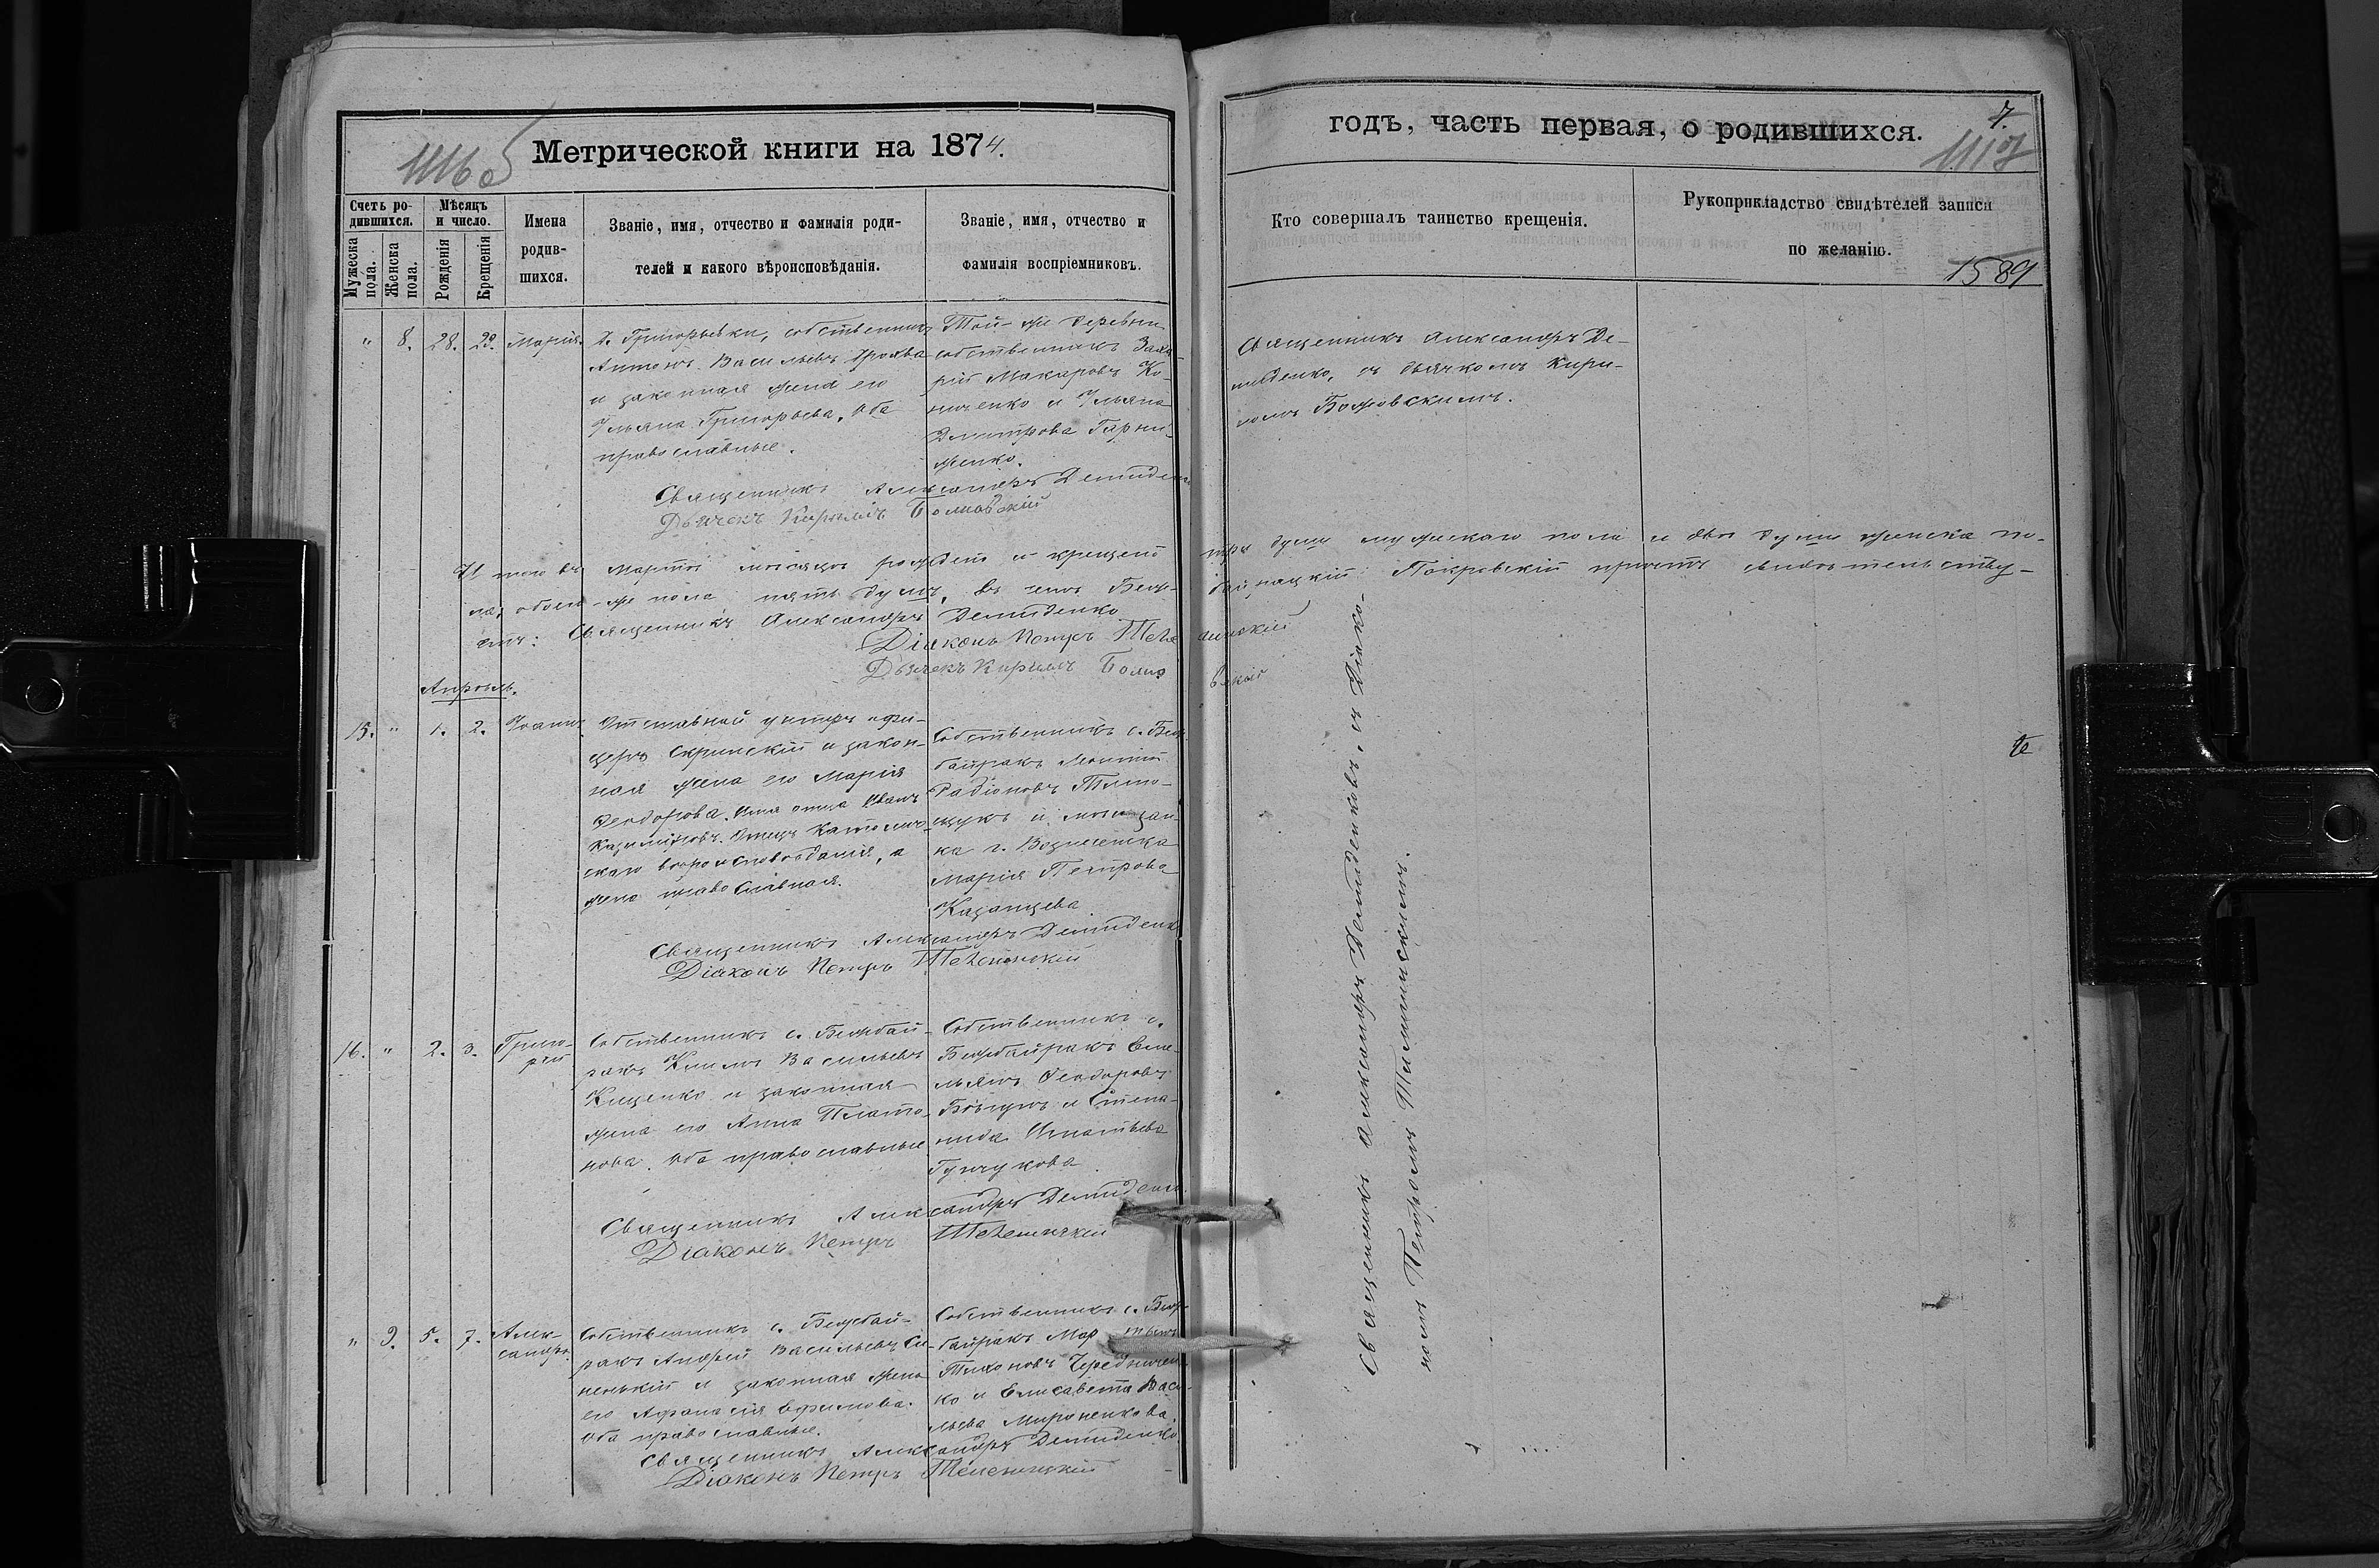 Метрической книги на 1874.
Счетъ ро-
дившихся.
Мужеска пола.
Женска пола.
Мѣсяцъ
и число.
Рожденія
Крещенія
Имена
родив-
шихся.
Званіе, имя, отчество и фамилія роди-
телей и какого вѣроисповѣданія.
Званіе, имя, отчество и
фамилія воспріемниковъ.
" 8. 28. 29. Марія.
д. Григорьевки, собственникъ
Антонъ Васильевъ
и законная жена его
Ульяна Григорьева, оба
православные.
Той-же деревни
собственникъ Заха-
рій Макаровъ Ко-
ниченко и Ульяна
Дмитрова Гарни-
женко.
Священникъ Александръ Демиденко
Дьячекъ Кириллъ
Итого въ Мартѣ мѣсяцѣ рождено и крещено три души мужескаго пола и двѣ души женска по-
ла, обоего-же пола пять душъ, въ чемъ Беж-байрацкій Покровскій причтъ свидѣтельству-
етъ: Священникъ Александръ Демиденко
Діаконъ Петръ
Дьячекъ Кириллъ
Апрѣль.
15. " 1. 2. Іоаннъ
Отставной унтеръ офи-
церъ Скринскій и закон-
ная жена его Марія
Ѳеодорова. Имя отца Иванъ
Казиміровъ. Отецъ католиче-
скаго вѣроисповѣданія, а
жена православная.
Собственникъ с. Беж-
байракъ Леонтій
Радіоновъ Тимо-
щукъ и мѣщан-
ка г. Вознесенска
Марія Петрова
Казанцева
Священникъ Александръ Демиденко
Діаконъ Петръ
16. " 2. 3. Григо-
рій
Собственникъ с. Бежбай-
ракъ Климъ Васильевъ
Кищенко и законная
жена его Анна Плато-
нова. Оба православные
Собственникъ с.
Бежбайракъ Еме-
льянъ Ѳеодоровъ
и Степа-
нида Игнатьева
Гунчукова
Священникъ Александръ Демиденко
Діаконъ Петръ
" 9. 5. 7. Алек-
сандра
Собственникъ с. Бежбай-
ракъ Андрей Васильевъ Си-
ненькій и законная жена
его Афанасія Ефимова.
Оба православные.
Собственникъ с. Беж-
байракъ
Тихоновъ Чередничен-
ко и Елисавета Васи-
льева Мироненкова.
Священникъ Александръ Демиденко
Діаконъ Петръ
годъ, часть первая, о родившихся.
7.
1117
Кто совершалъ таинство крещенія.
Рукоприкладство свидѣтелей записи
по желанію.
1589
Священникъ Александръ Де-
миденко, съ дьячкомъ Кири-
ломъ
Священникъ Александръ Демиденковъ, съ Діако-
номъ Петромъ